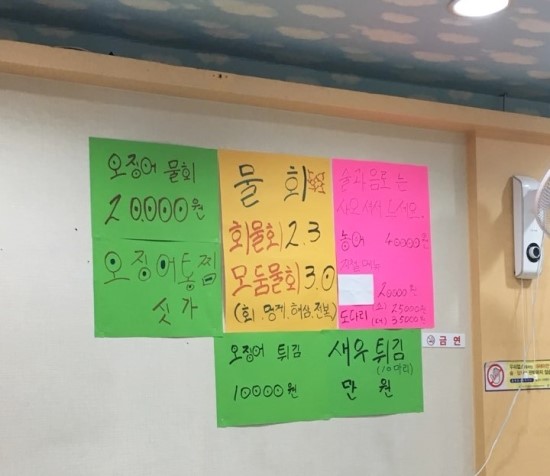 오징어 물회
20000원
오징어통찜
싯가
물회
회물회 2.3
모둠물회 3.0
(회.멍게.해삼.전복)
술과 음료는
사오셔서 드세요
농어 40000원
20000원
도다리 (小) 25000원
(大) 35000원
오징어 튀김
10000원
새우 튀김
(10마리)
만 원
금연